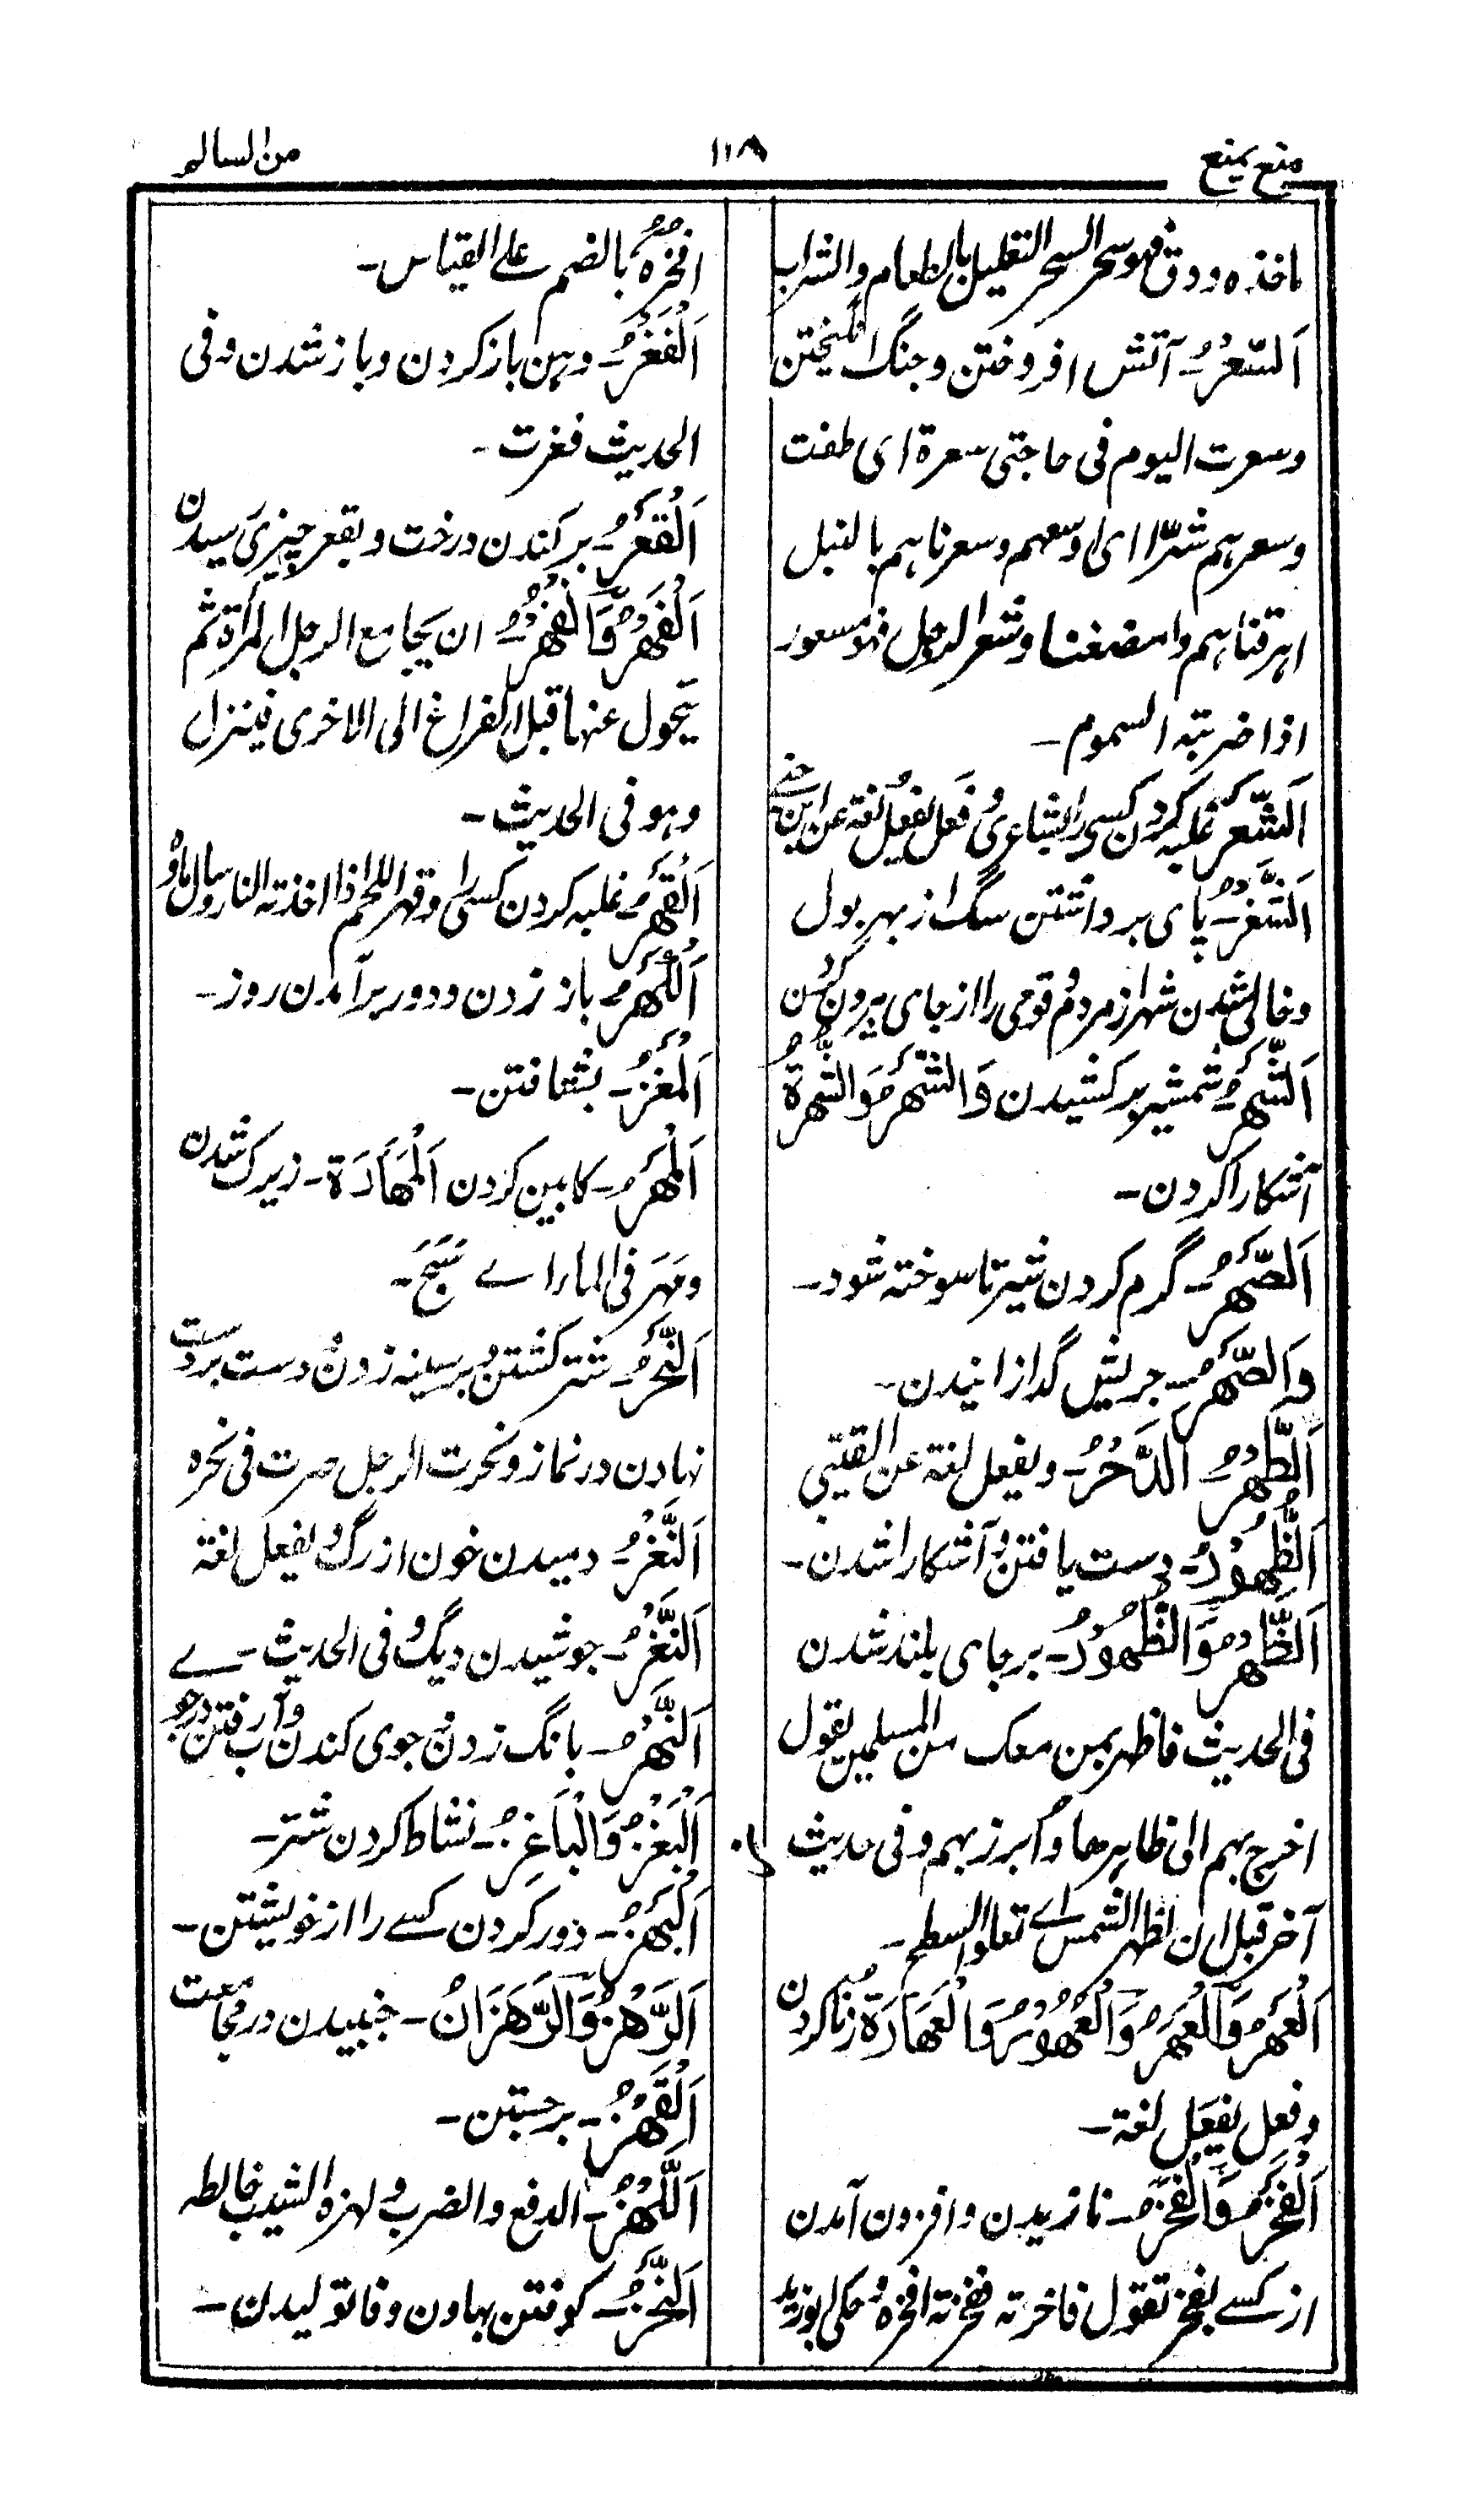 منع یمنع
۱۱۸
من السالم
ماخذه ودق فهو سحر السحر التعلیل بالطعام والشراب
اَلسَّعْرُ۔ آتش افروختن وجنگ انگیختن
وسعرت الیوم فی حاجتی سعرة ای طفت
وسعرهم شرّا ای اوسعهم وسعرناهم بالنبل
احرقناهم وامضغنا وشعر الرجل فهو مسعور
اذا ضربته السموم۔
اَلشَّعْرُ غلبه کردن کسی را بشاعری وَفَعل یفعُل لغة عن ابن جنی
اَلشَّغْرُ۔ پای برداشتن سگ از بهر بول
وخالی شدن شهر از مردم وقومی را از جای بیرون کردن
اَلشَّهْرُ شمشیر برکشیدن وَالشَّهْرُ وَالشُّهْرَةُ
آشکارا کردن۔
اَلصَّهْرُ۔ گرم کردن شیر تا سوخته شود۔
وَالصَّهْرُ۔ چربش گدازانیدن۔
اَلطَّهْرُ الدَّحْرُ۔ ویفعل لغة عن القتیبی
اَلظُّهُوْرُ۔ دست یافتن وآشکارا شدن۔
اَلظَّهْرُ وَالظُّهُوْرُ۔ بر جای بلند شدن
فی الحدیث فاظهر بمن معک من المسلمین یقول
اخرج بهم الی ظاهرها وابرز بهم وفی حدیث
آخر قبل ان تظهر الشمس اے تعلوا السطح۔
اَلْعَهْرُ وَالْعَهَرُ وَالْعُهُوْرُ وَالْعَهَارَة زنا کردن
وفعل یفعَل لغة۔
اَلْفَخْرُ وَالْفَخَرُ۔ نازیدن وافزون آمدن
از کسے بفخر تقول فاخرته ففخرته افخرهُ حکی ابوزید
افخرُهُ بالضم علی القیاس۔
اَلْفَغْرُ۔ دهن باز کردن وباز شدن وفی
الحدیث فغرت۔
اَلْقَعْرُ۔ برکندن درخت وبقعر چیزی رسیدن
اَلْفَهْرُ وَالْفَهَرُ۔ ان یجامع الرجل المرأة ثم
یتحول عنها قبل الفراغ الی الاخری فینزل
وهو فی الحدیث۔
اَلْقَهْرُ۔ غلبه کردن کسی را وقهر اللحم اذا اخذته النار وسال ماؤه
اَلْکَهْرُ۔ باز زدن ودور برآمدن روز۔
اَلْمَغْرُ۔ بشتافتن۔
اَلْمَهْرُ۔ کابین کردن اَلْمَهَارَة۔ زیرک شدن
ومَهَرَ فی الماء اے سَبَحَ۔
اَلنَّحْرُ۔ شتر کشتن وبر سینه زدن ودست بر دست
نهادن در نماز ونحرت الرجل صرت فی نحره
اَلنَّعْرُ۔ دمیدن خون از رگ ویفعل لغة
اَلنَّغْرُ۔ جوشیدن دیگ وفی الحدیث۔ے
اَلنَّهْرُ۔ بانگ زدن وجوی کندن وآب رفتن در جو
اَلْبَغْزُ وَالْبَاغِزُ۔ نشاط کردن شتر۔
اَلْبَهْزُ۔ دور کردن کسے را از خویشتن۔
اَلرَّهْزُ وَالرَّهَزَانُ۔ جنبیدن در مجامعت
اَلْقَهْزُ۔ برجستن۔
اَللَّهْزُ۔ الدفع والضرب ولهزه الشیب خالطه
اَلنَّحْزُ۔ کوفتن بهاون وفا تولیدن۔